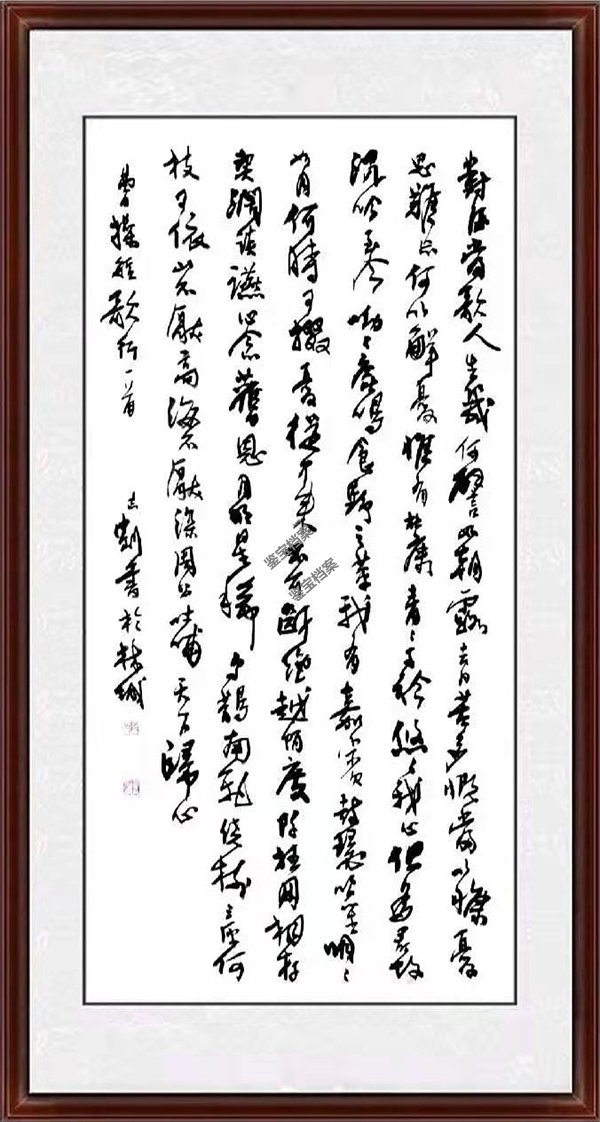 對酒當歌人生幾何譬如朝露去日苦多慨當以慷憂
思難忘何以解憂惟有杜康青〻子衿悠〻我心但為君故
沉吟至今呦〻鹿鳴食野之苹我有嘉賓鼓瑟吹笙明〻
如月何時可掇憂從中來不可斷絕越陌度阡枉用相存
契闊談讌心念舊恩月明星稀烏鵲南飛繞樹三匝何
枝可依山不厭高海不厭深周公吐哺天下歸心
曹操短歌行一首 書於
鉴宝档案
鉴宝档案